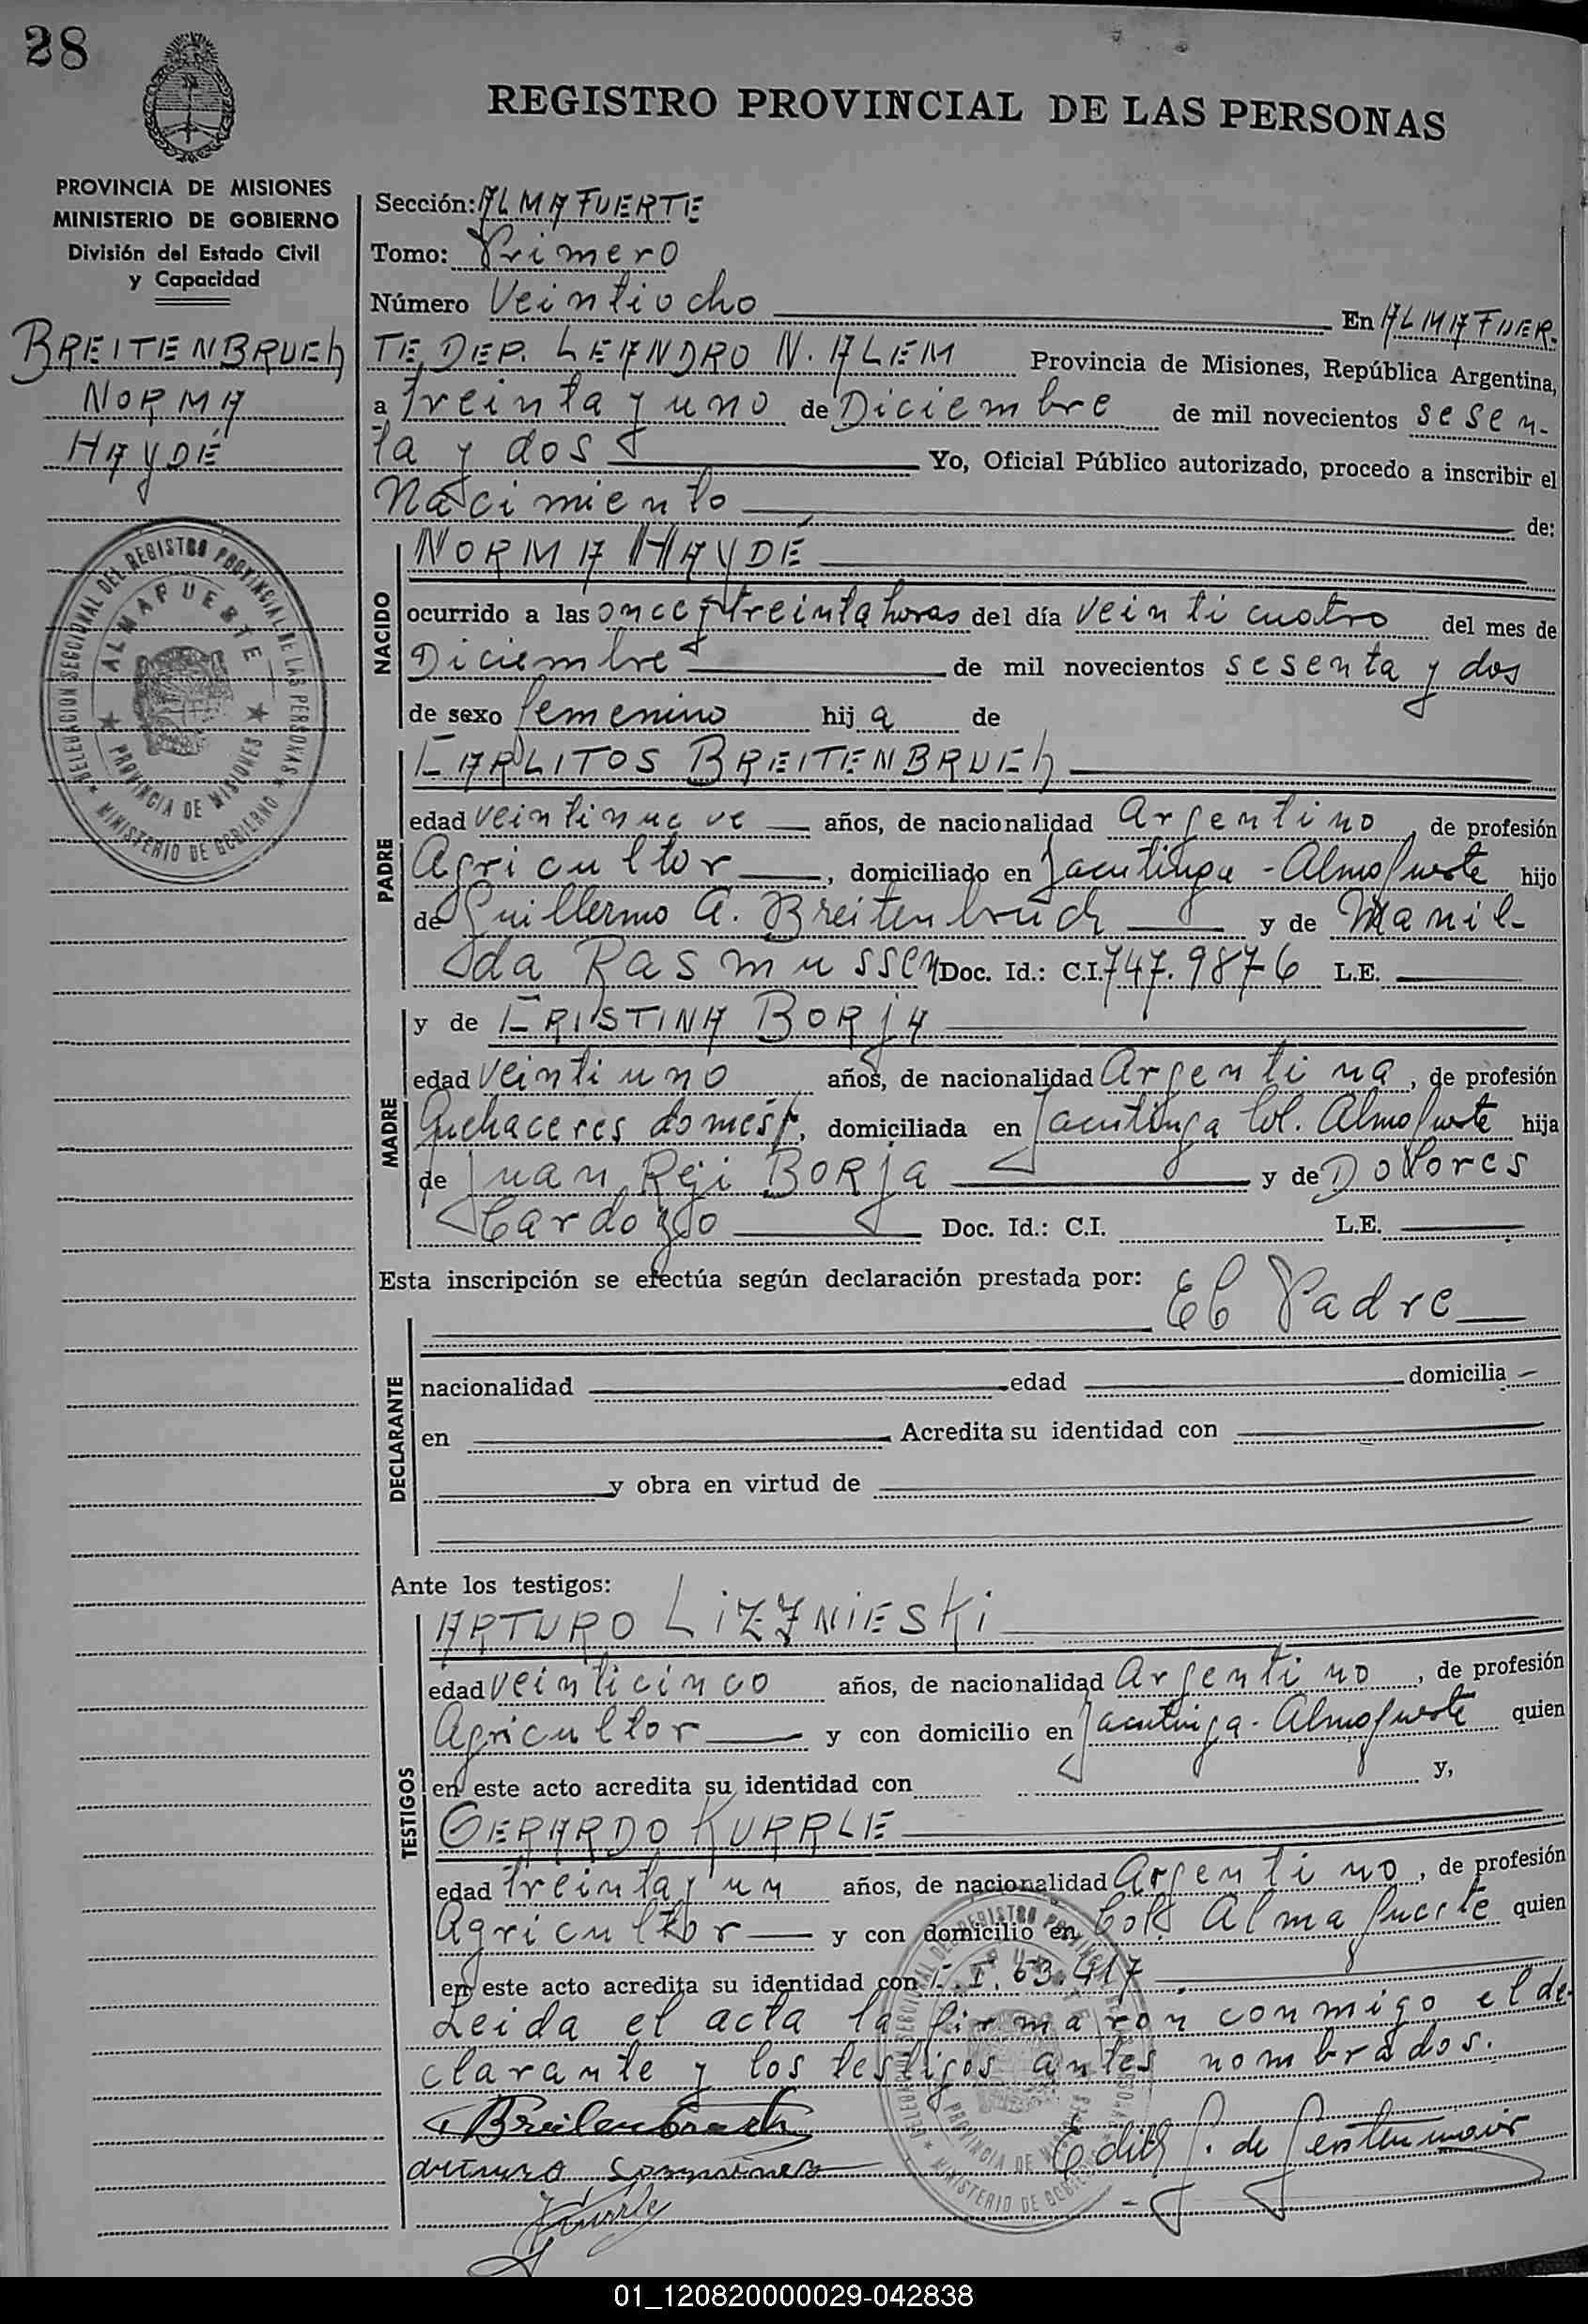 28
REGISTRO PROVINCIAL DE LAS PERSONAS
PROVINCIA DE MISIONES
MINISTERIO DE GOBIERNO
División del Estado Civil
y Capacidad
BREITENBRUCh
NORMA
HAYDÉ
DELEGACION SECCIONAL DEL REGISTRO PROVINCIAL DE LAS PERSONAS
ALMAFUERTE
PROVINCIA DE MISIONES
MINISTERIO DE GOBIERNO
Sección: ALMAFUERTE
Tomo: Primero
Número Veintiocho En ALMAFUER-
TE, DEP. LEANDRO N. ALEM Provincia de Misiones, República Argentina,
a treinta y uno de Diciembre de mil novecientos sesen-
ta y dos Yo, Oficial Público autorizado, procedo a inscribir el
Nacimiento de:
NACIDO
NORMA HAYDÉ
ocurrido a las once y treinta horas del día veinticuatro del mes de
Diciembre de mil novecientos sesenta y dos
de sexo femenino hija de
PADRE
CARLITOS BREITENBRUCh
edad veintinueve años, de nacionalidad Argentino, de profesión
Agricultor, domiciliado en Jacutinga - Almafuerte hijo
de Guillermo A. Breitenbruch y de Manil-
da Rasmussen Doc. Id.: C.I. 747.9876 L.E.
MADRE
y de CRISTINA BORJA
edad veintiuno años, de nacionalidad Argentina, de profesión
Quehaceres domést. domiciliada en Jacutinga Col. Almafuerte hija
de Juan Reji BORJA y de Dolores
Cardozo Doc. Id.: C.I. L.E.
Esta inscripción se efectúa según declaración prestada por: El Padre
DECLARANTE
nacionalidad edad domicilia
en Acredita su identidad con
y obra en virtud de
Ante los testigos:
TESTIGOS
ARTURO LiZZNiESKi
edad veinticinco años, de nacionalidad Argentino, de profesión
Agricultor y con domicilio en Jacutinga - Almafuerte quien
en este acto acredita su identidad con y,
GERARDO KURRLE
edad treinta y un años, de nacionalidad Argentino, de profesión
Agricultor y con domicilio en Col. Alma fuerte quien
en este acto acredita su identidad con C.I. 63.417
Leida el acta la firmaron conmigo el de-
clarante y los testigos antes nombrados.
Breitenbruch
Arturo
Edith G. de
Kurrle
01_120820000029-042838